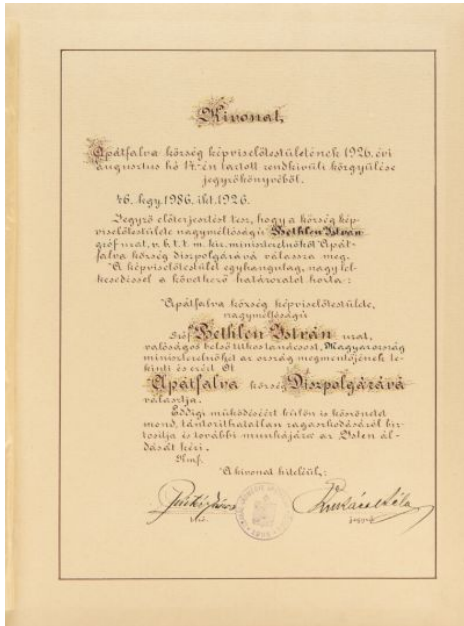 Kivonat,
Apátfalva község képviselőtestületének 1926. évi
augusztus hó 17.-én tartott rendkivüli közgyülése
jegyzőkönyvéből.
46. kgy. 1986. ikt. 1926.
Jegyző előterjesztést tesz, hogy a község kép-
viselőtestülete nagyméltóságú Bethlen István
gróf urat, v. b. t. t. m. kir. miniszterelnököt Apát-
falva község diszpolgárává válassza meg.
A képviselőtestület egyhangulag, nagy lel-
kesedéssel a következő határozatot hozta:
Apátfalva község képviselőtestülete,
nagyméltóságú
Gróf Bethlen István urat,
valóságos belső titkos tanácsost, Magyarország
miniszterelnökét az ország megmentőjének te-
kinti és ezért Őt
Apátfalva község Diszpolgárává
választja.
Eddigi működéséért külön is köszönetet
mond, tántorithatatlan ragaszkodásáról biz-
tositja és további munkájára az Isten ál-
dását kéri.
Kmf.
A kivonat hiteléül:
jegyző